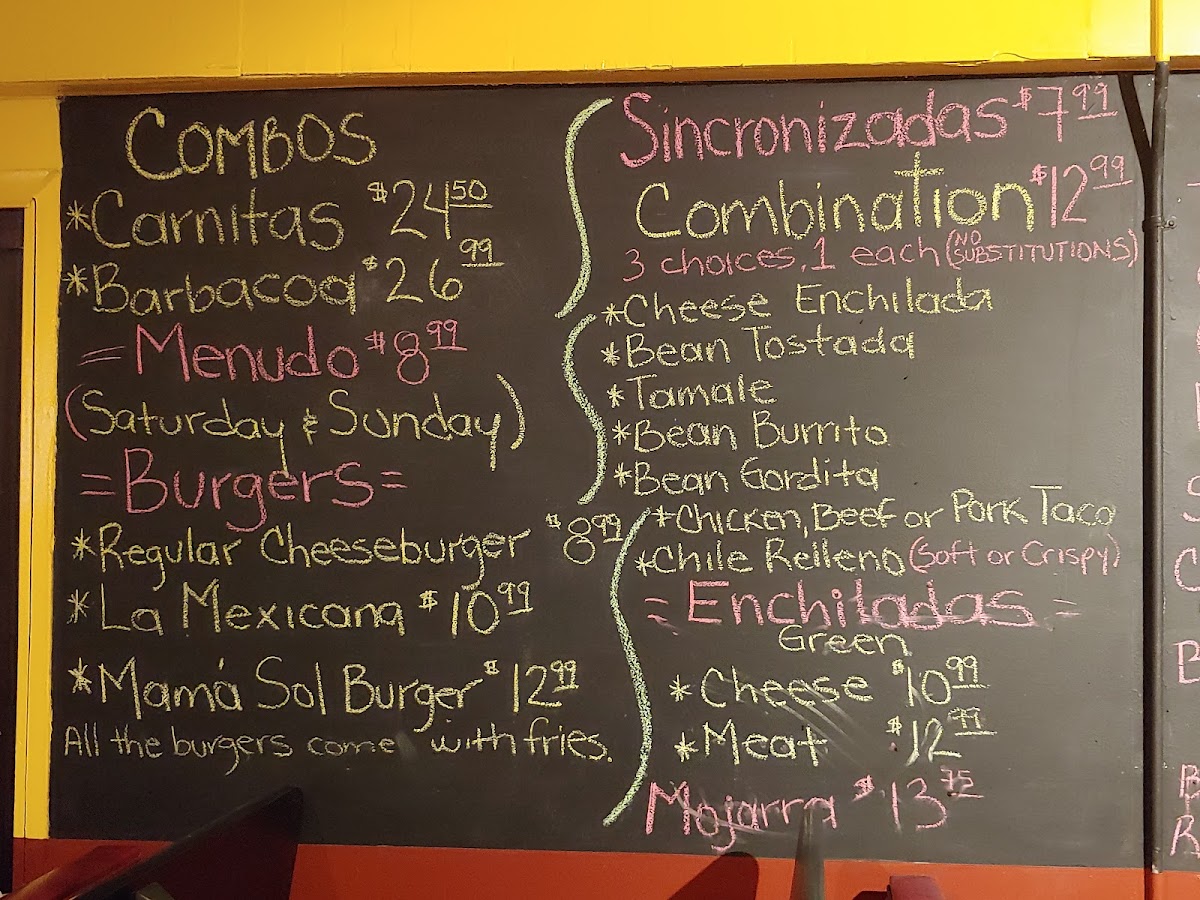 COMBOS
*Carnitas $24.50
*Barbacoa $26.99
= Menudo $8.99
(Saturday & Sunday)
=Burgers=
*Regular Cheeseburger $8.99
*La Mexicana $10.99
*Mamá Sol Burger $12.99
All the burgers come with fries.
Sincronizadas $7.99
Combination $12.99
3 choices, 1 each (NO SUBSTITUTIONS)
*Cheese Enchilada
*Bean Tostada
*Tamale
*Bean Burrito
*Bean Gordita
*Chicken, Beef or Pork Taco
*Chile Relleno (Soft or Crispy)
= Enchiladas =
Green
*Cheese $10.99
*Meat $12.99
Mojarra $13.75